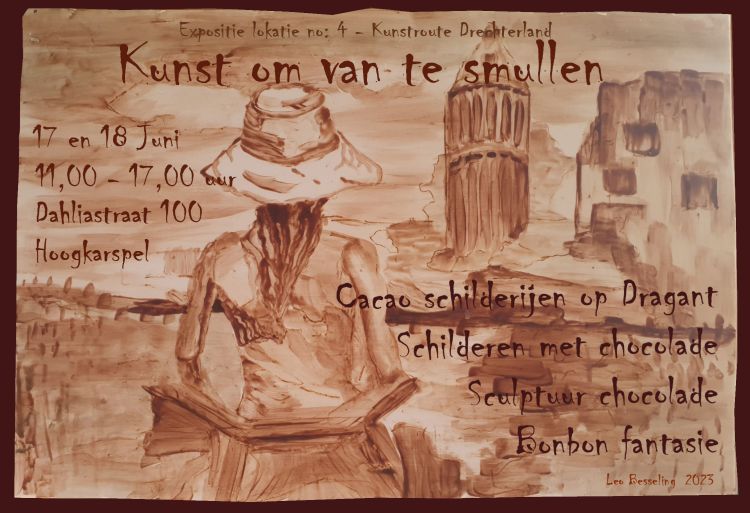 Expositie lokatie no: 4 - Kunstroute Drechterland
Kunst om van te smullen
17 en 18 Juni
11,00 - 17,00 uur
Dahliastraat 100
Hoogkarspel
Cacao schilderijen op Dragant
Schilderen met chocolade
Sculptuur chocolade
Bonbon fantasie
Leo Besseling 2023